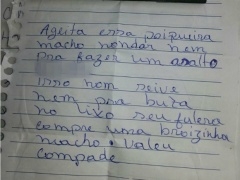 Ageita essa poipueira
macho non dar nem
pra fazer um asalto
Isso nom seive
nem pra buta
no lixo seu fulera
compre uma broizinha
macho. Valeu
compade